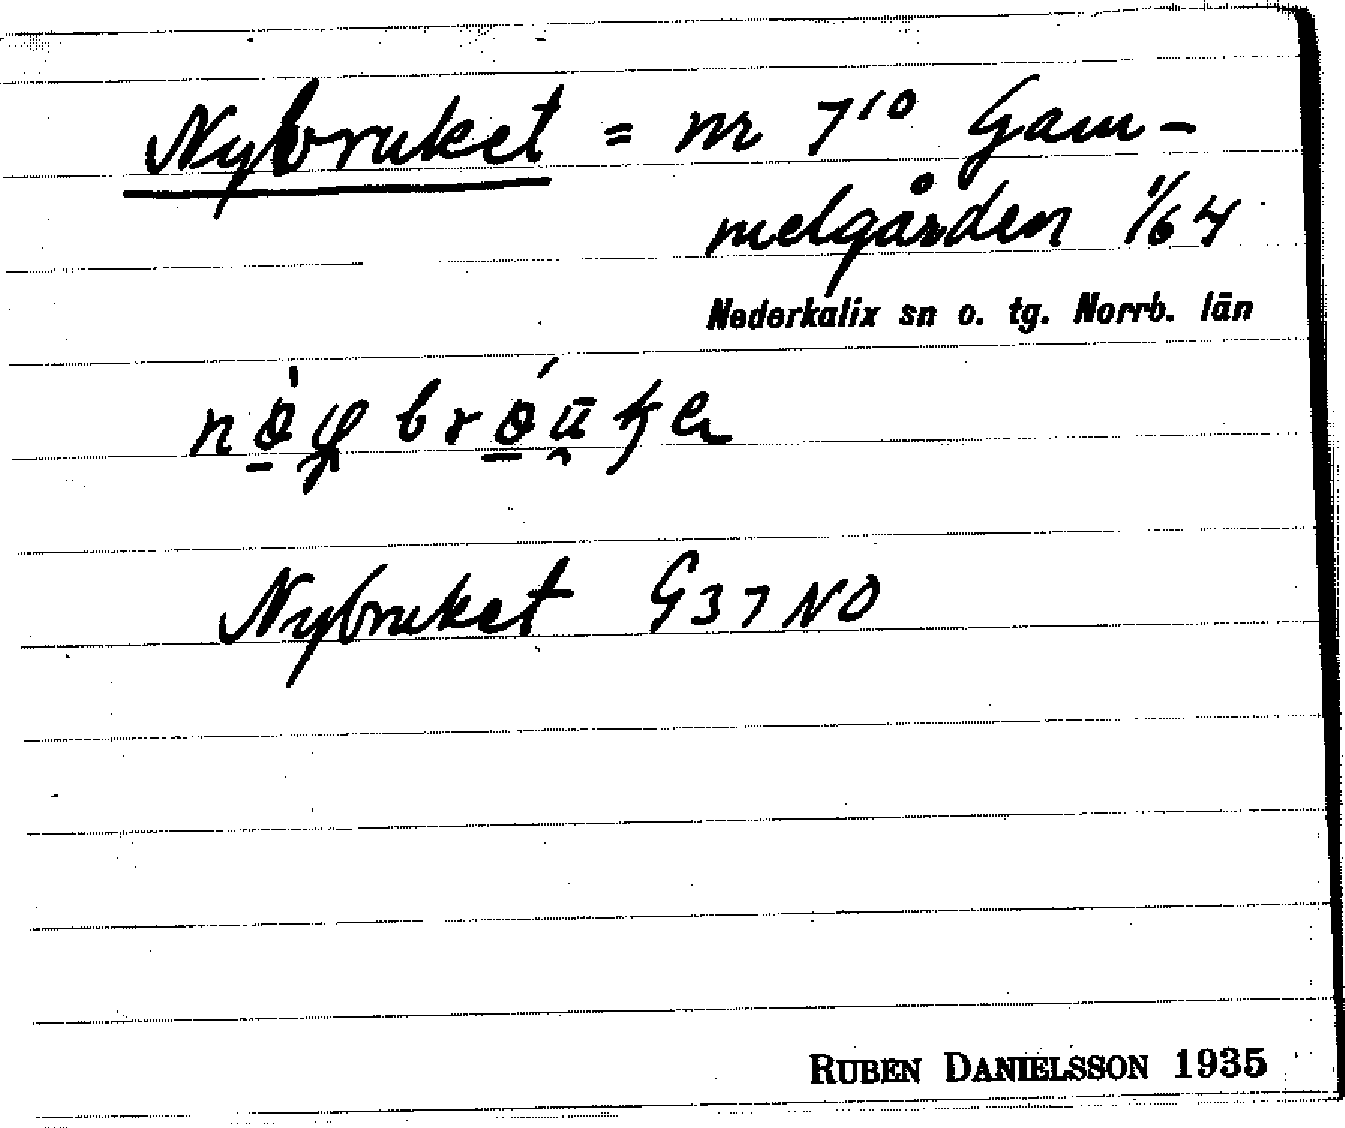 Nybruket = nr 7¹⁰ Gam-
melgården 1/64
Nederkalix sn o. tg. Norrb. län
Nybruket G37NO
RUBEN DANIELSSON 1935